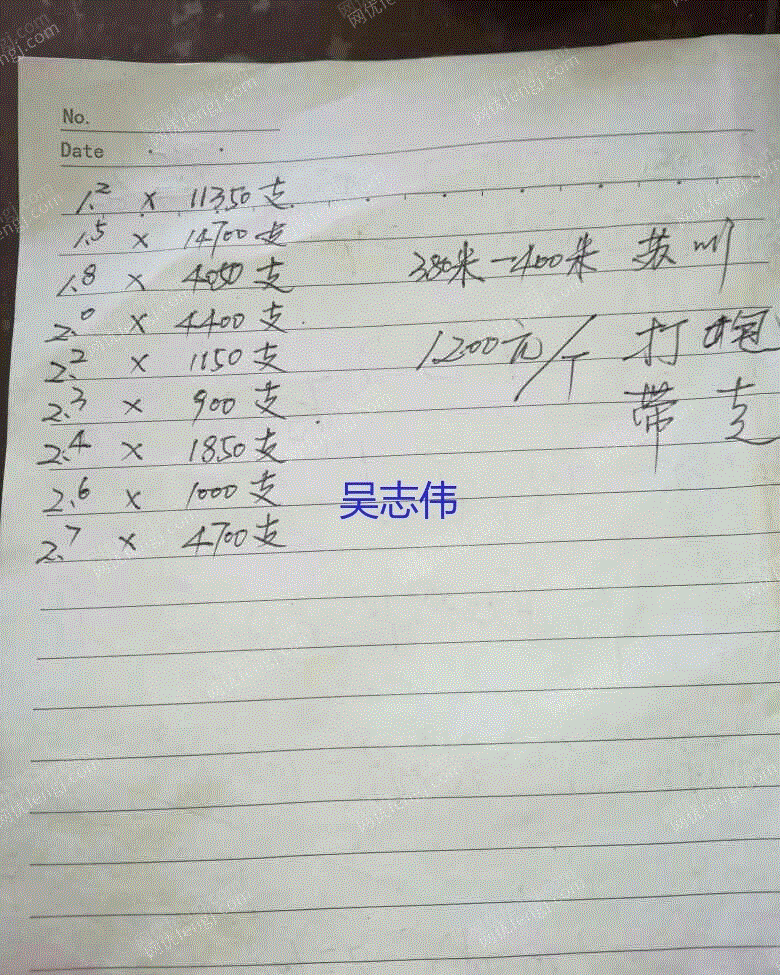 No.
Date
1.2 × 11350支
1.5 × 14700支
1.8 × 4050支
2.0 × 4400支
2.2 × 1150支
2.3 × 900支
2.4 × 1850支
2.6 × 1000支
2.7 × 4700支
380米-400米 苏州
1200元/T 打包
带走
吴志伟
网优fengj.com